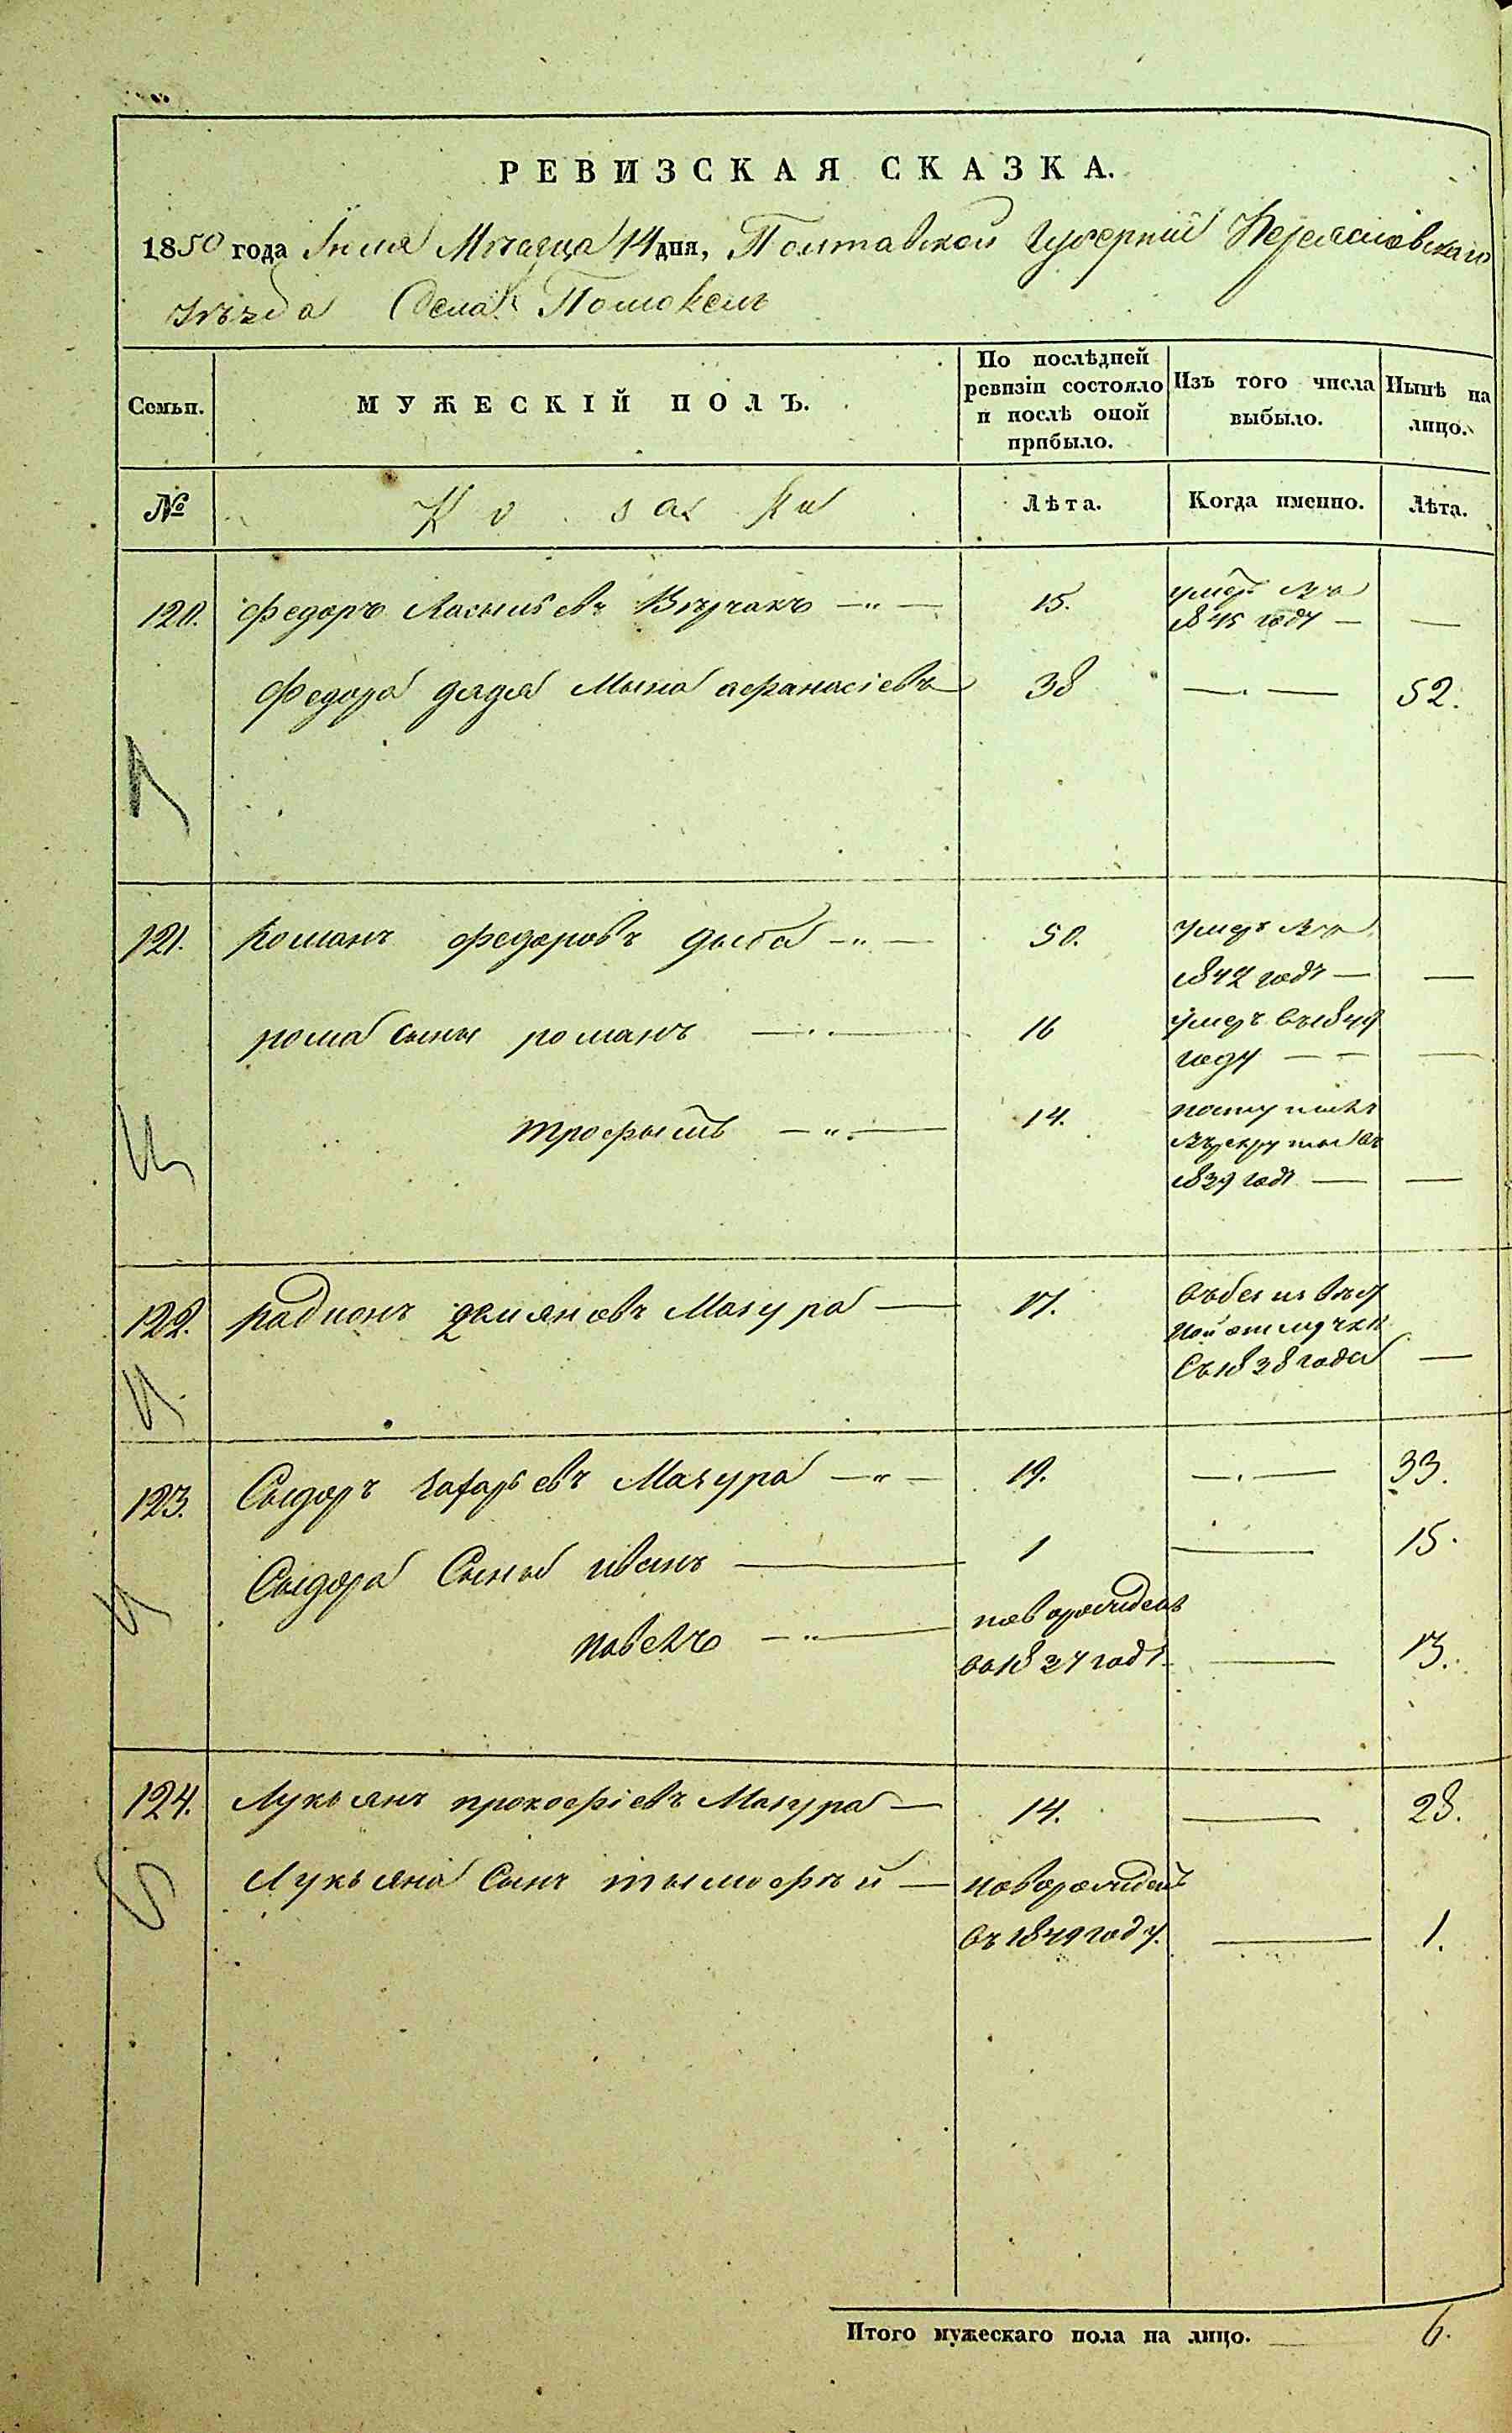 РЕВИЗСКАЯ СКАЗКА.
1850 года Іюля Мѣсяца 14 дня, Полтавской Губерніи Переяславскаго
уѣзда Села Помоклей
Семьи.
МУЖЕСКІЙ ПОЛЪ.
По послѣдней ревизіи состояло и послѣ оной прибыло.
Изъ того числа выбыло.
Нынѣ на лицо.
№
Козаки
Лѣта.
Когда именно.
Лѣта.
120. Федоръ Васильевъ — 15. умеръ въ
1845 году — —
Федора дядя Мына афанасіевъ 38 — 52.
121. романъ федоровъ дыба — 50. умеръ въ
1842 годъ — —
рома сыны романъ — 16 умеръ въ 1849
году — —
трофымъ — 14. поступилъ
въ рекруты въ
1839 годъ — —
122. радионъ дамяновъ Мазура — 17.
отлучки
съ 1838 года —
123. Сыдоръ захарьевъ Мазура — 19. — 33.
Сыдора Сыны иванъ — 1 — 15.
павелъ — новорожденъ
въ 1837 годъ — 13.
124. Лукьянъ прокофіевъ Мазура — 14. — 28.
Лукьяна Сынъ тымофѣй — новорожденъ
въ 1849 году. — 1.
Итого мужескаго пола на лицо. 6.